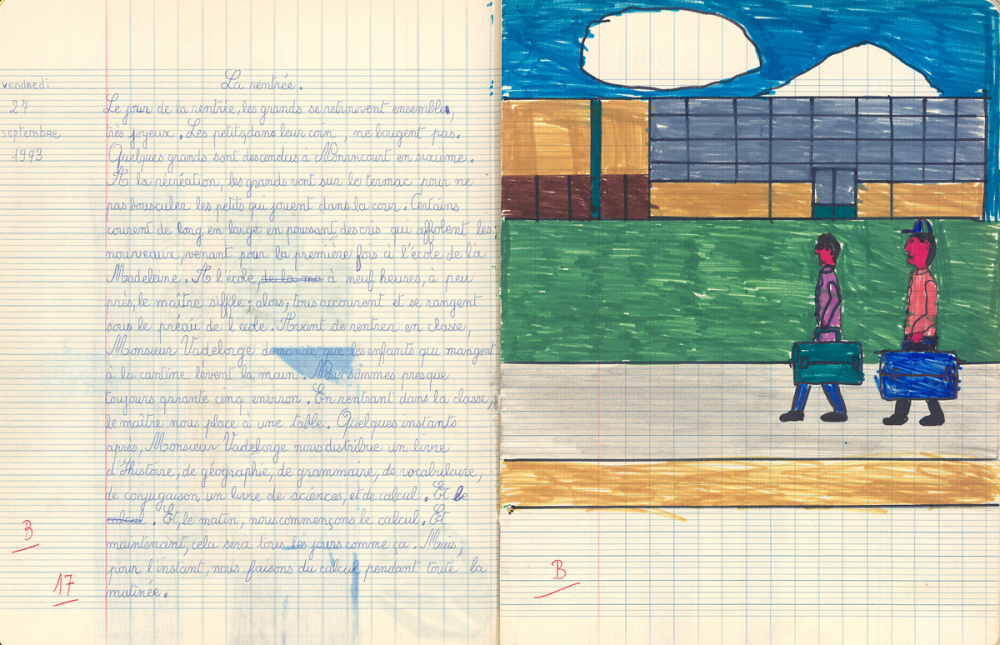 vendredi
27
septembre
1973
La rentrée.
Le jour de la rentrée, les grands se retrouvent ensemble,
très joyeux. Les petits, dans leur coin, ne bougent pas.
Quelques grands sont descendus à in sixième.
A la récréation, les grands vont sur le termac pour ne
pas bousculer les petits qui jouent dans la cour. Certains
courent de long en large en poussant des cris qui affolent les
nouveaux, venant pour la première fois à l'école de la
Madeleine. A l'école, de la ma à neuf heures, à peu
près, le maître siffle ; alors, tous accourent et se rangent
sous le préau de l'école. Avant de rentrer en classe,
Monsieur Vadelorge demande que les enfants qui mangent
à la cantine lèvent la main. Nous sommes presque
toujours quarante cinq environ. En rentrant dans la classe,
le maître nous place à une table. Quelques instants
après, Monsieur Vadelorge nous distribue un livre
d'Histoire, de géographie, de grammaire, de vocabulaire,
de conjugaison un livre de sciences, et de calcul. Et le
calcul. Et, le matin, nous commençons le calcul. Et
maintenant, cela sera tous les jours comme ça. Mais,
pour l'instant, nous faisons du calcul pendant toute la
matinée.
B
17
B